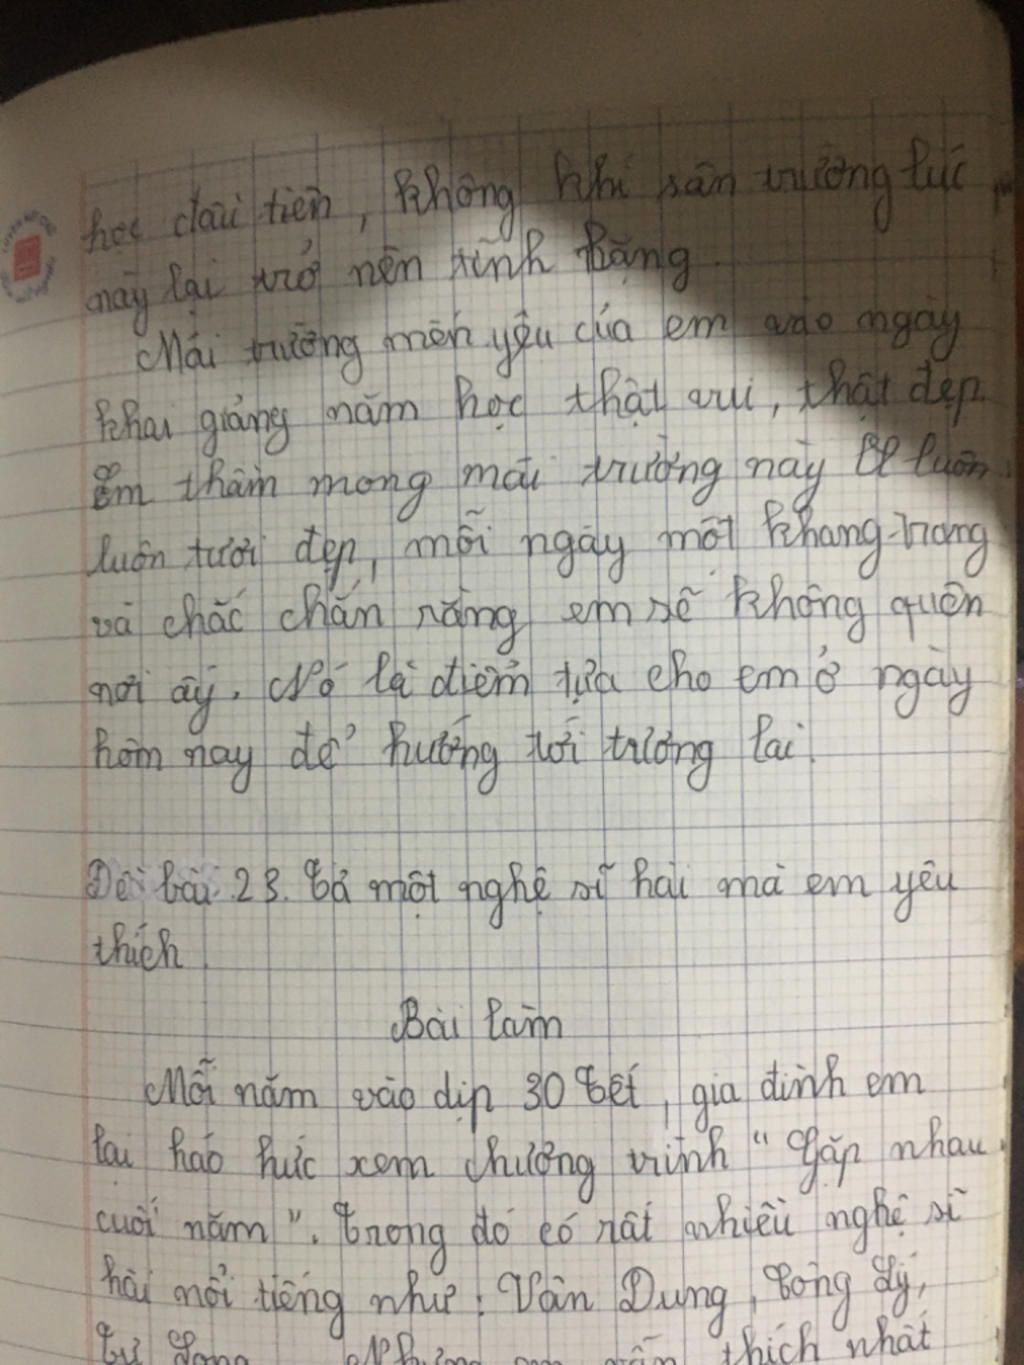 học đầu tiên, không khí sân trường lúc
này lại trở nên tĩnh lặng.
Mái trường mến yêu của em vào ngày
khai giảng năm học thật vui, thật đẹp.
Em thầm mong mái trường này luôn
luôn tươi đẹp, mỗi ngày một khang trang
và chắc chắn rằng em sẽ không quên
nơi ấy. Nó là điểm tựa cho em ở ngày
hôm nay để hướng tới tương lai.
Đề bài 23. Tả một nghệ sĩ hài mà em yêu
thích
Bài làm
Mỗi năm vào dịp 30 Tết, gia đình em
lại háo hức xem chương trình "Gặp nhau
cuối năm". Trong đó có rất nhiều nghệ sĩ
hài nổi tiếng như: Vân Dung, Công Lý,
Tự Long Nhưng em vẫn thích nhất